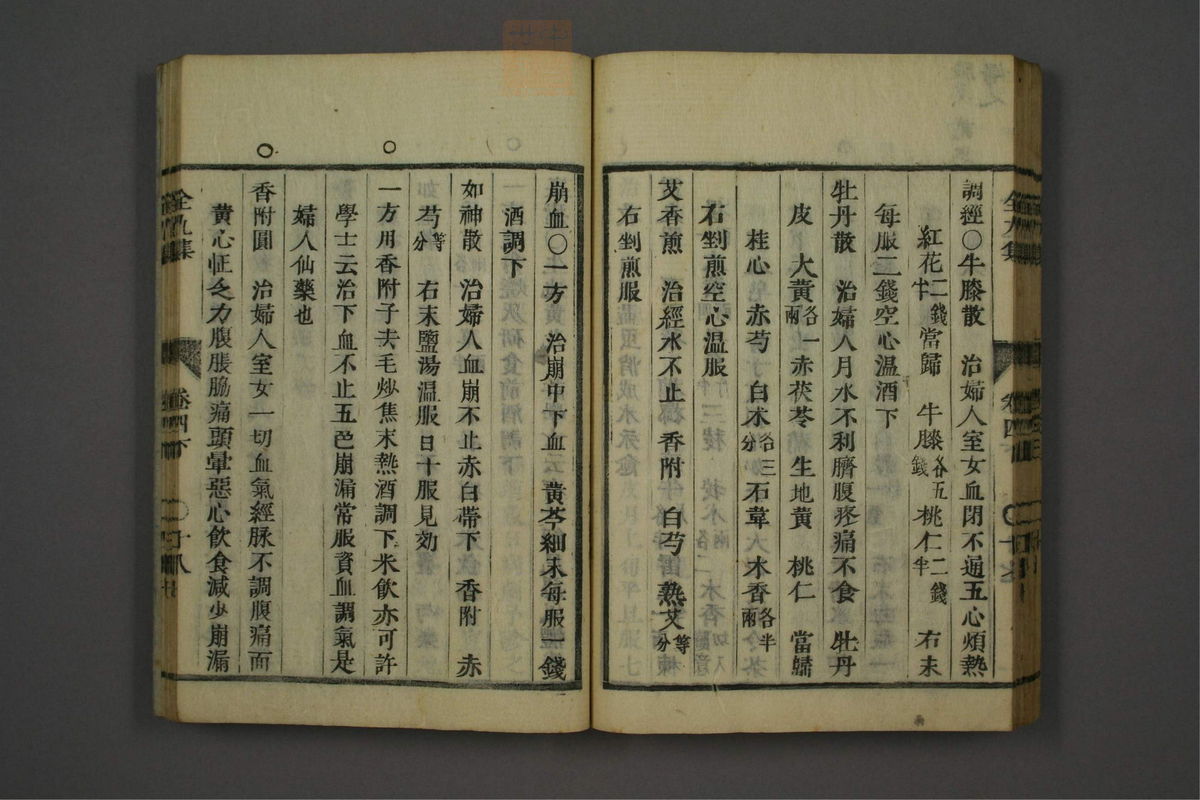 調經○牛膝散　治婦人室女血閉不通五心煩熱
紅花二錢半當歸　牛膝各五錢桃仁二錢半　右末
每服二錢空心溫酒下
牡丹散　治婦人月水不利臍腹疼痛不食　牡丹
皮　大黃各一兩赤茯苓　生地黃　桃仁　當歸
桂心　赤芍　白朮各三分石韋　木香各半兩
右剉煎空心温服
艾香煎　治經水不止　香附　白芍　熟艾等分
右剉煎服
全九集
卷四下
十八
崩血○一方　治崩中下血　黃芩細末每服一錢
酒調下
如神散　治婦人血崩不止赤白帶下　香附　赤
芍等分　右末鹽湯温服日十服見効
一方用香附子去毛炒焦末熱酒調下米飲亦可許
學士云治下血不止五色崩漏常服資血調氣是
婦人仙藥也
香附圓　治婦人室女一切血氣經脉不調腹痛面
黃心怔乏力腹脹脇痛頭暈惡心飲食減少崩漏